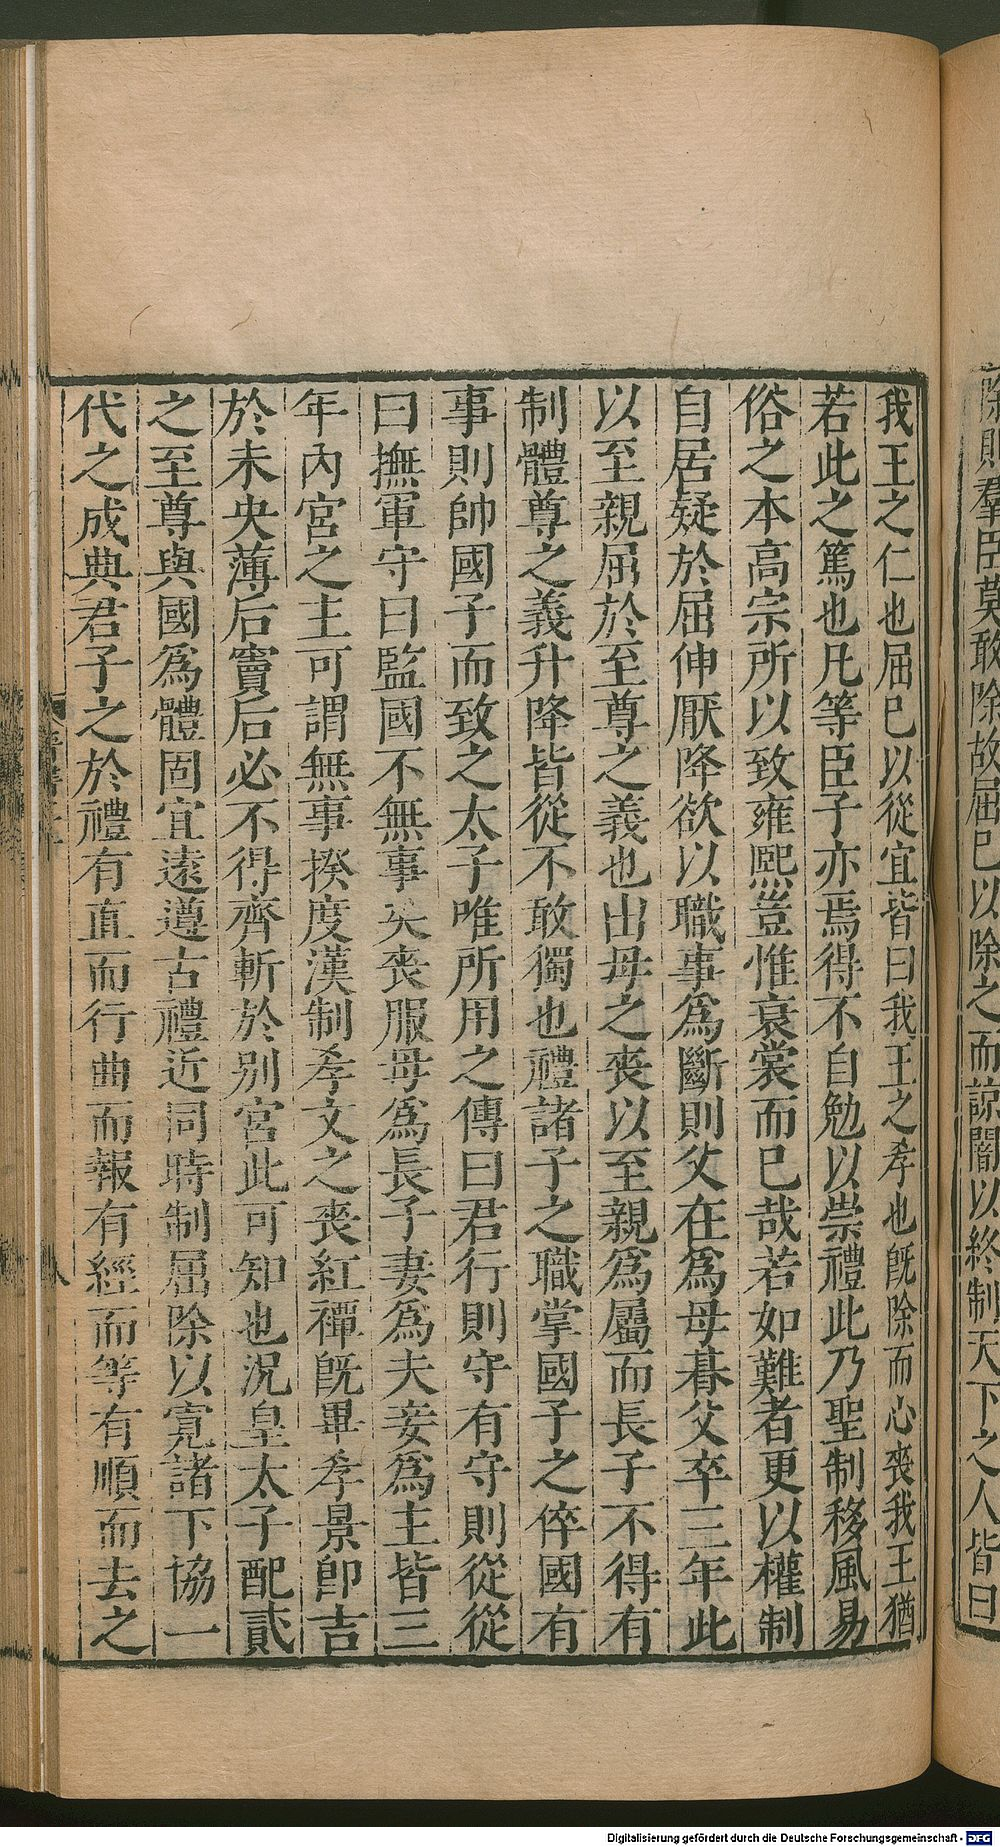 除則羣臣莫敢除故屈已以除之而諒闇以終制天下之人皆曰
我王之仁也屈已以從宜皆曰我王之孝也旣除而心喪我王猶
若此之篤也凡等臣子亦焉得不自勉以崇禮此乃聖制移風易
俗之本高宗所以致雍熙豈惟衰裳而已哉若如難者更以權制
自居疑於屈伸厭降欲以職事爲斷則父在爲母朞父卒三年此
以至親屈於至尊之義也出母之喪以至親爲屬而長子不得有
制體尊之義升降皆從不敢獨也禮諸子之職掌國子之倅國有
事則帥國子而致之太子唯所用之傳曰君行則守有守則從從
曰撫軍守曰監國不無事矣喪服母爲長子妻爲夫妾爲主皆三
年內宮之主可謂無事揆度漢制孝文之喪紅禫旣畢孝景卽吉
於未央薄后竇后必不得齊斬於別宮此可知也況皇太子配貳
之至尊與國爲體固宜遠遵古禮近同時制屈除以寬諸下協一
代之成典君子之於禮有直而行曲而報有經而等有順而去之
八
Digitalisierung gefördert durch die Deutsche Forschungsgemeinschaft - DFG